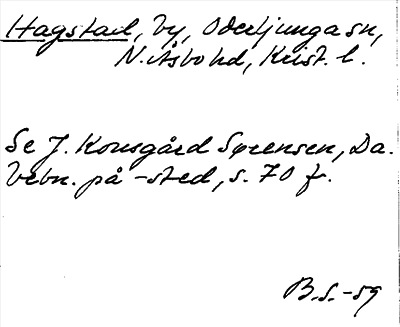 Hagstad, by, Oderljunga sn,
N. Åsbo hd, Krist. l.
Se J. Kousgård Sørensen, Da.
bebn. på -sted, s. 70 f.
B.S.-59